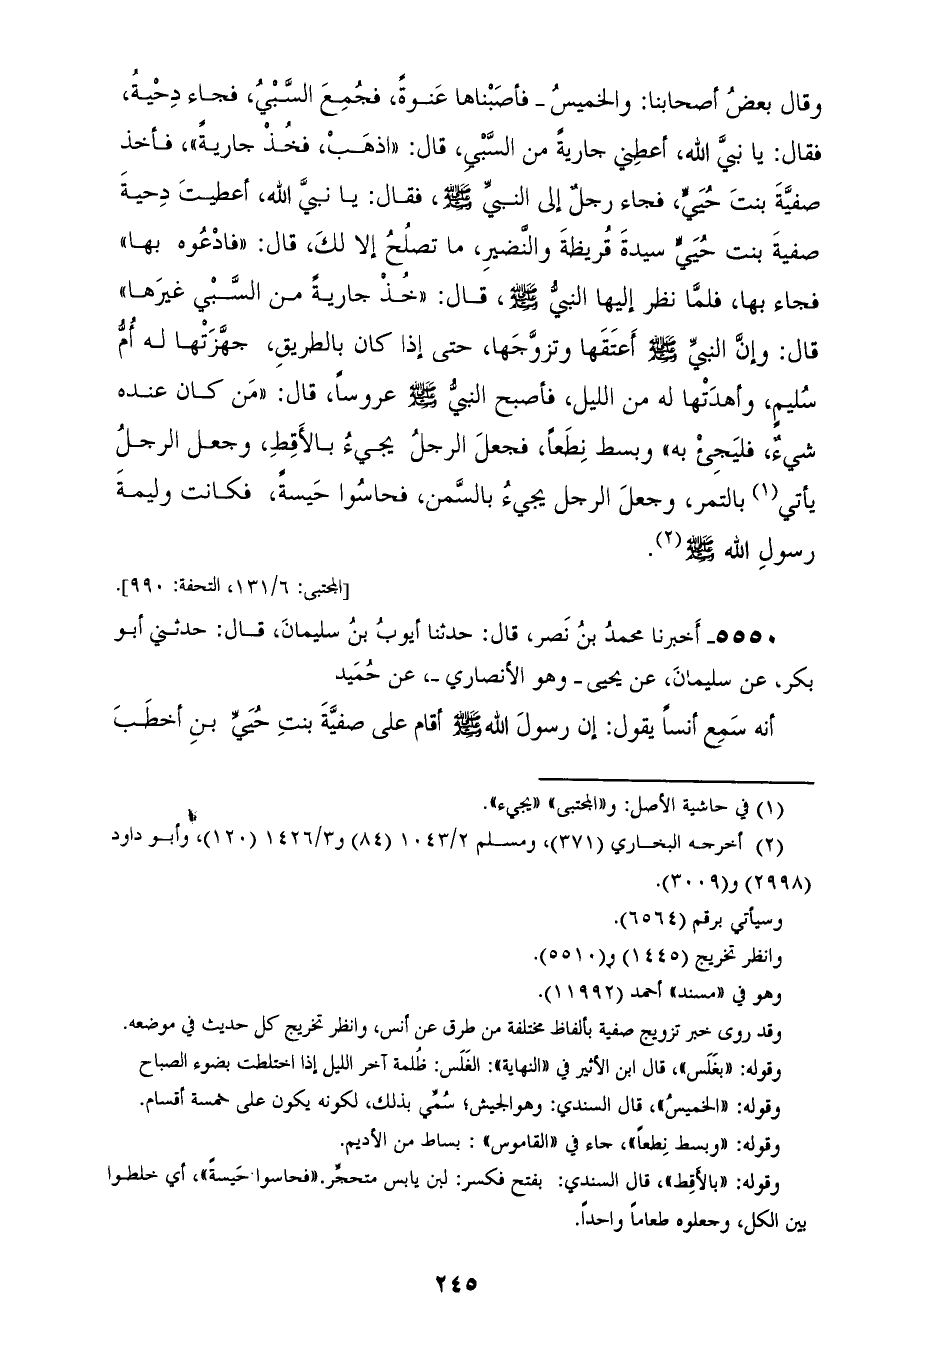 وقال بعضُ أصحابنا: والخميسُ ـ فأصَبْناها عَنوةً، فجُمِعَ السَّبْيُ، فجاء دِحْيةُ،
فقال: يا نبيَّ الله، أعطِني جاريةً من السَّبْيِ، قال: «اذهَبْ، فخُذْ جاريةً»، فأخذ
صفيَّةَ بنتَ حُيَيٍّ، فجاء رجلٌ إلى النبيِّ ﷺ، فقال: يا نبيَّ الله، أعطيتَ دِحيةَ
صفيةَ بنت حُيَيٍّ سيدةَ قُريظةَ والنَّضيرِ، ما تصلُحُ إلا لكَ، قال: «فادْعُوه بها»
فجاء بها، فلمَّا نظر إليها النبيُّ ﷺ، قال: «خُذْ جاريةً من السَّبْي غيرَها»
قال: وإنَّ النبيَّ ﷺ أعتَقَها وتزوَّجَها، حتى إذا كان بالطريقِ، جهَّزَتْها له أُمُّ
سُليمٍ، وأهدَتْها له من الليل، فأصبح النبيُّ ﷺ عروساً، قال: «مَن كان عنده
شيءٌ، فليَجِئْ به» وبسط نِطَعاً، فجعلَ الرجلُ يجيءُ بالأَقِطِ، وجعل الرجلُ
يأتي(١) بالتمر، وجعلَ الرجل يجيءُ بالسَّمن، فحاسُوا حَيسةً، فكانت وليمةَ
رسولِ الله ﷺ(٢).
[المجتبى: ١٣١/٦، التحفة: ٩٩٠].
٥٥٥٠ـ أَخبرنا محمدُ بنُ نَصر، قال: حدثنا أيوبُ بنُ سليمانَ، قال: حدثني أبو
بكر، عن سليمانَ، عن يحيى ـ وهو الأنصاري ـ، عن حُمَيد
أنه سَمِع أنساً يقول: إن رسولَ الله ﷺ أقام على صفيَّةَ بنتِ حُيَيِّ بنِ أخطَبَ
(١) في حاشية الأصل: و«المجتبى» «يجيء».
(٢) أخرجه البخاري (٣٧١)، ومسلم ١٠٤٣/٢ (٨٤) و١٤٢٦/٣ (١٢٠)، وأبو داود
(٢٩٩٨) و(٣٠٠٩).
وسيأتي برقم (٦٥٦٤).
وانظر تخريج (١٤٤٥) و(٥٥١٠).
وهو في «مسند» أحمد (١١٩٩٢).
وقد روى خبر تزويج صفية بألفاظ مختلفة من طرق عن أنس، وانظر تخريج كل حديث في موضعه.
وقوله: «بغَلَس»، قال ابن الأثير في «النهاية»: الغَلَس: ظُلمة آخر الليل إذا اختلطت بضوء الصباح
وقوله: «الخميسُ»، قال السندي: وهوالجيش؛ سُمِّي بذلك، لكونه يكون على خمسة أقسام.
وقوله: «وبسط نِطعاً»، جاء في «القاموس» : بساط من الأديم.
وقوله: «بالأَقِط»، قال السندي: بفتح فكسر: لبن يابس متحجِّر.«فحاسوا حَيسةً»، أي خلطوا
بين الكل، وجعلوه طعاماً واحداً.
٢٤٥